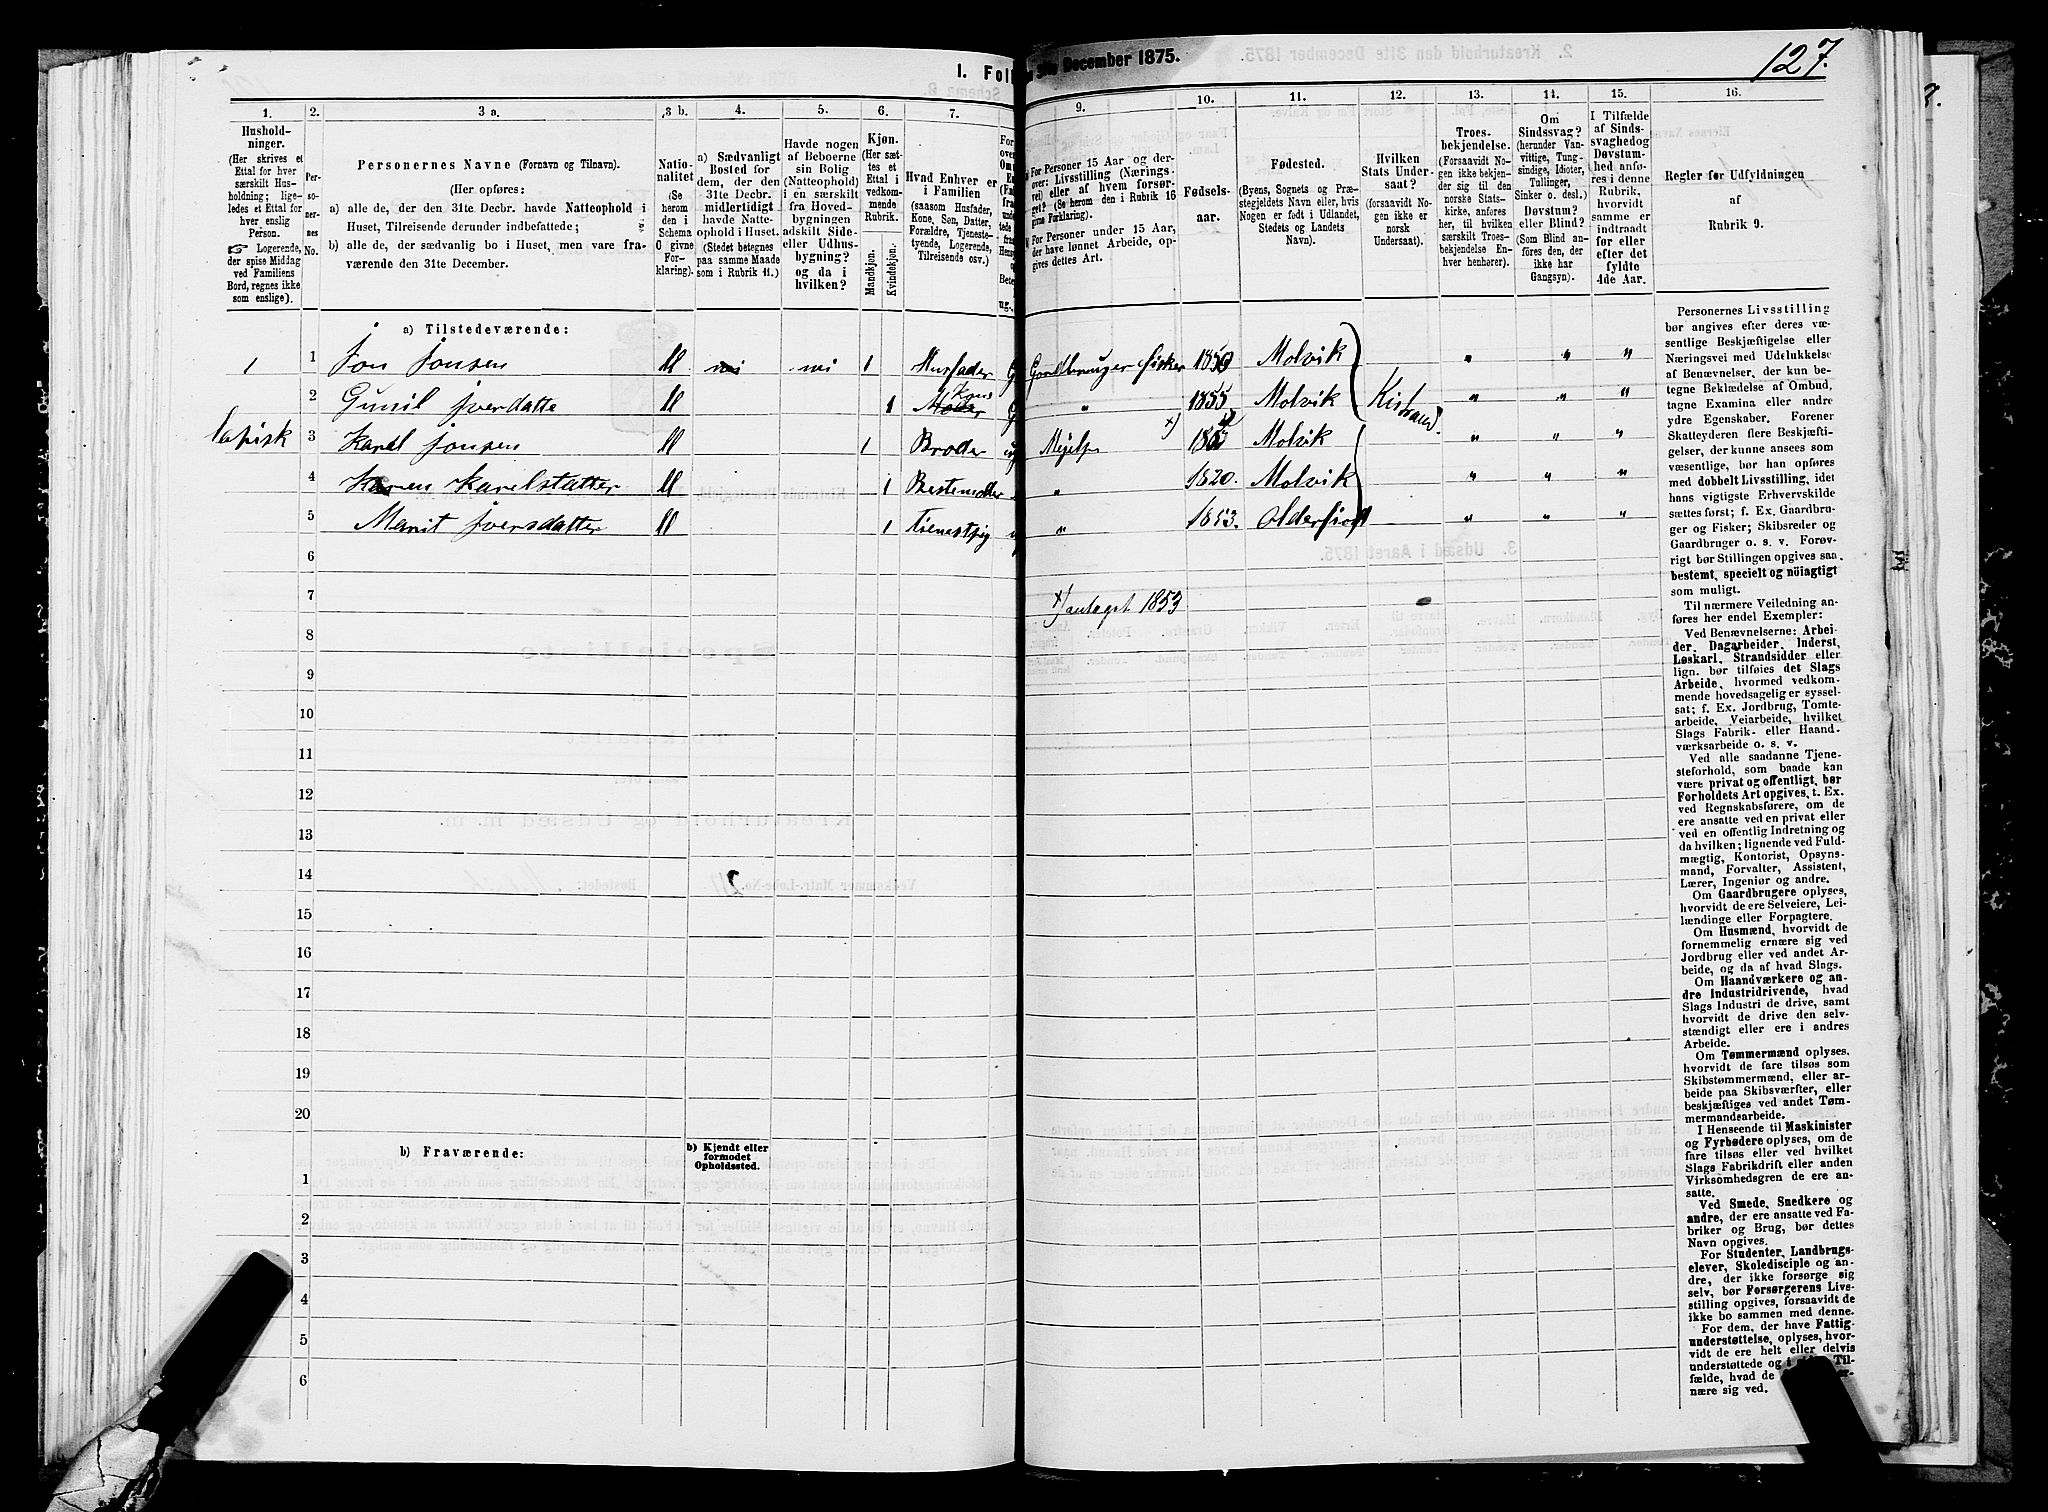 127.
I. Fol
31te December 1875.
1. 2. 3 a. 3 b. 4. 5. 6. 7. 9. 10. 11. 12. 13. 14. 15. 16.
Hushold-
ninger.
(Her skrives et
Ettal for hver
særskilt Hus-
holdning; lige-
ledes et Ettal for
hver enslig
Person.
☞ Logerende,
der spise Middag
ved Familiens
Bord, regnes ikke
som enslige).
Per-
so-
ner-
nes
No.
Personernes Navne (Fornavn og Tilnavn).
(Her opføres:
a) alle de, der den 31te Decbr. havde Natteophold i
Huset, Tilreisende derunder indbefattede;
b) alle de, der sædvanlig bo i Huset, men vare fra-
værende den 31te December.
Natio-
nalitet
(Se
herom
den i
Schema
6 givne
For-
klaring).
a) Sædvanligt
Bosted for
dem, der den
31te Decbr.
midlertidigt
havde Natte-
ophold i Huset.
(Stedet betegnes
paa samme Maade
som i Rubrik 11.)
Havde nogen
af Beboerne
sin Bolig
(Natteophold)
i en særskilt
fra Hoved-
bygningen
adskilt Side-
eller Udhus-
bygning?
og da i
hvilken?
Kjøn.
(Her sæt-
tes et
Ettal i
vedkom-
mende
Rubrik.
Mandkjøn.
Kvindekjøn.
Hvad Enhver er
i Familien
(saasom Husfader,
Kone, Søn, Datter,
Forældre, Tjeneste-
tyende, Logerende,
Tilreisende osv.)
For Personer 15 Aar og der-
over: Livsstilling (Nærings-
vei) eller af hvem forsør-
get? (Se herom den i Rubrik 16
givne Forklaring).
For Personer under 15 Aar,
der have lønnet Arbeide, op-
gives dettes Art.
Fødsels-
aar.
Fødested.
(Byens, Sognets og Præ-
stegjeldets Navn eller, hvis
Nogen er født i Udlandet,
Stedets og Landets
Navn).
Hvilken
Stats Under-
saat?
(forsaavidt No-
gen ikke er
norsk
Undersaat).
Troes-
bekjendelse.
(Forsaavidt No-
gen ikke bekjen-
der sig til den
norske Stats-
kirke, anføres
her, til hvilken
særskilt Troes-
bekjendelse En-
hver henhører).
Om
Sindssvag?
(herunder Van-
vittige, Tung-
sindige, Idioter,
Tullinger,
Sinker o. desl.)
Døvstum?
eller Blind?
(Som Blind an-
føres den, der
ikke har
Gangsyn).
I Tilfælde
af Sinds-
svaghedog
Døvstum-
hed anfø-
res i denne
Rubrik,
hvorvidt
samme er
indtraadt
før eller
efter det
fyldte
4de Aar.
Regler for Udfyldningen
af
Rubrik 9.
a) Tilstedeværende:
1 1 Jon Jonsen ll ni ni 1 Husfader G Gardbruger fisker 1850 Molvik " " "
2 Gunil Iverdatte ll 1 Moder Kone G " 1855 Molvik Kistrand. " " "
lapisk 3 Karel Jonsen ll 1 Broder x) Molvik " " "
4 Karen Karelstatter ll 1 Bestemoder " 1820. Molvik " " "
5 Marit Iversdatter ll 1 " 1853. Olderfiord " " "
6
7 x) antaget 1853
8
9
10
11
12
13
14
15
16
17
18
19
20
b) Fraværende:
b) Kjendt eller
formodet
Opholdssted.
1
2
3
4
5
6
Personernes Livsstilling
bør angives efter deres væ-
sentlige Beskjæftigelse eller
Næringsvei med Udelukkelse
af Benævnelser, der kun be-
tegne Beklædelse af Ombud,
tagne Examina eller andre
ydre Egenskaber. Forener
Skatteyderen flere Beskjæfti-
gelser, der kunne ansees som
væsentlige, bør han opføres
med dobbelt Livsstilling, idet
hans vigtigste Erhvervskilde
sættes først; f. Ex. Gaardbru-
ger og Fisker; Skibsreder og
Gaardbruger o. s. v. Forøv-
rigt bør Stillingen opgives saa
bestemt, specielt og nöiagtigt
som muligt.
Til nærmere Veiledning an-
føres her endel Exempler:
Ved Benævnelserne: Arbei-
der, Dagarbeider, Inderst,
Løskarl, Strandsidder eller
lign. bør tilføies det Slags
Arbeide, hvormed vedkom-
mende hovedsagelig er syssel-
sat; f. Ex. Jordbrug, Tomte-
arbeide, Veiarbeide, hvilket
Slags Fabrik- eller Haand-
værksarbeide o. s. v.
Ved alle saadanne Tjene-
steforhold, som baade kan
være privat og offentligt, bør
Forholdets Art opgives, t. Ex.
ved Regnskabsførere, om de
ere ansatte ved en privat eller
ved en offentlig Indretning og
da hvilken; lignende ved Fuld-
mægtig, Kontorist, Opsyns-
mand, Forvalter, Assistent,
Lærer, Ingeniør og andre.
Om Gaardbrugere oplyses,
hvorvidt de ere Selveiere, Lei-
lændinge eller Forpagtere.
Om Husmænd, hvorvidt de
fornemmelig ernære sig ved
Jordbrug eller ved andet Ar-
beide, og da af hvad Slags.
Om Haandværkere og an-
dre Industridrivende, hvad
Slags Industri de drive, samt
hvorvidt de drive den selv-
stændigt eller ere i andres
Arbeide.
Om Tømmermænd oplyses,
hvorvidt de fare tilsøs som
Skibstømmermænd, eller ar-
beide paa Skibsværfter, eller
beskjæftiges ved andet Tøm-
mermandsarbeide.
I Henseende til Maskinister
og Fyrbødere oplyses, om de
fare tilsøs eller ved hvilket
Slags Fabrikdrift eller anden
Virksomhedsgren de ere an-
satte.
Ved Smede, Snedkere og
andre, der ere ansatte ved Fa-
briker og Brug, bør dettes
Navn opgives.
For Studenter, Landbrugs-
elever, Skoledisciple og an-
dre, der ikke forsørge sig
selv, bør Forsørgerens Livs-
stilling opgives, forsaavidt de
ikke bo sammen med denne.
For dem, der have Fattig-
understøttelse, oplyses, hvor-
vidt de ere helt eller delvis
understøttede og i Til-
fælde, hvad de
nære sig ved.